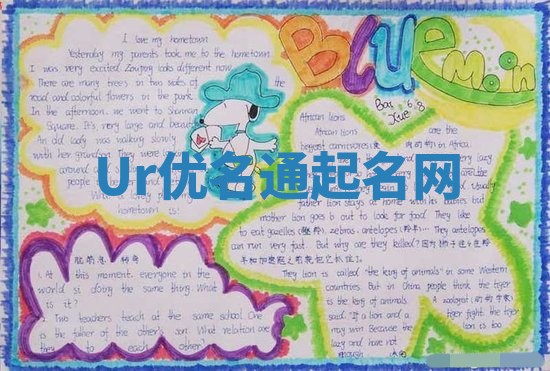 I love my hometown
Yesterday my parents took me to the hometown
I was very excited Zouping looks different now.
There are many trees in two sides of the
road and colorful flowers in the park.
In the afternoon, we went to
Square. It's very large and
An old lady was walking slowly
with her grandson. They were
around
people
hometown is!
BLUE Moon
6.8
African lions
African lions are the
biggest carnivores in Africa.
very lazy
around
Usually
father lion stays at home with
mother lion goes out to look for food. They like
to eat gazelles, zebras, antelopes They antelopes
can run very fast. But why are they killed?
They lion is called "the king of animals" in some Western
countries. But in China people think the tiger
is the king of animals. A zoologist
said: "If a lion and a tiger fight, the tiger
may win because the lion is too
lazy and have not
enough
Ur优名通起名网
脑筋急转弯
At this moment, everyone in the
world is doing the same thing. What
is it?
Two teachers teach at the same school. One
is the father of the other's son. What relation are
they to each other?